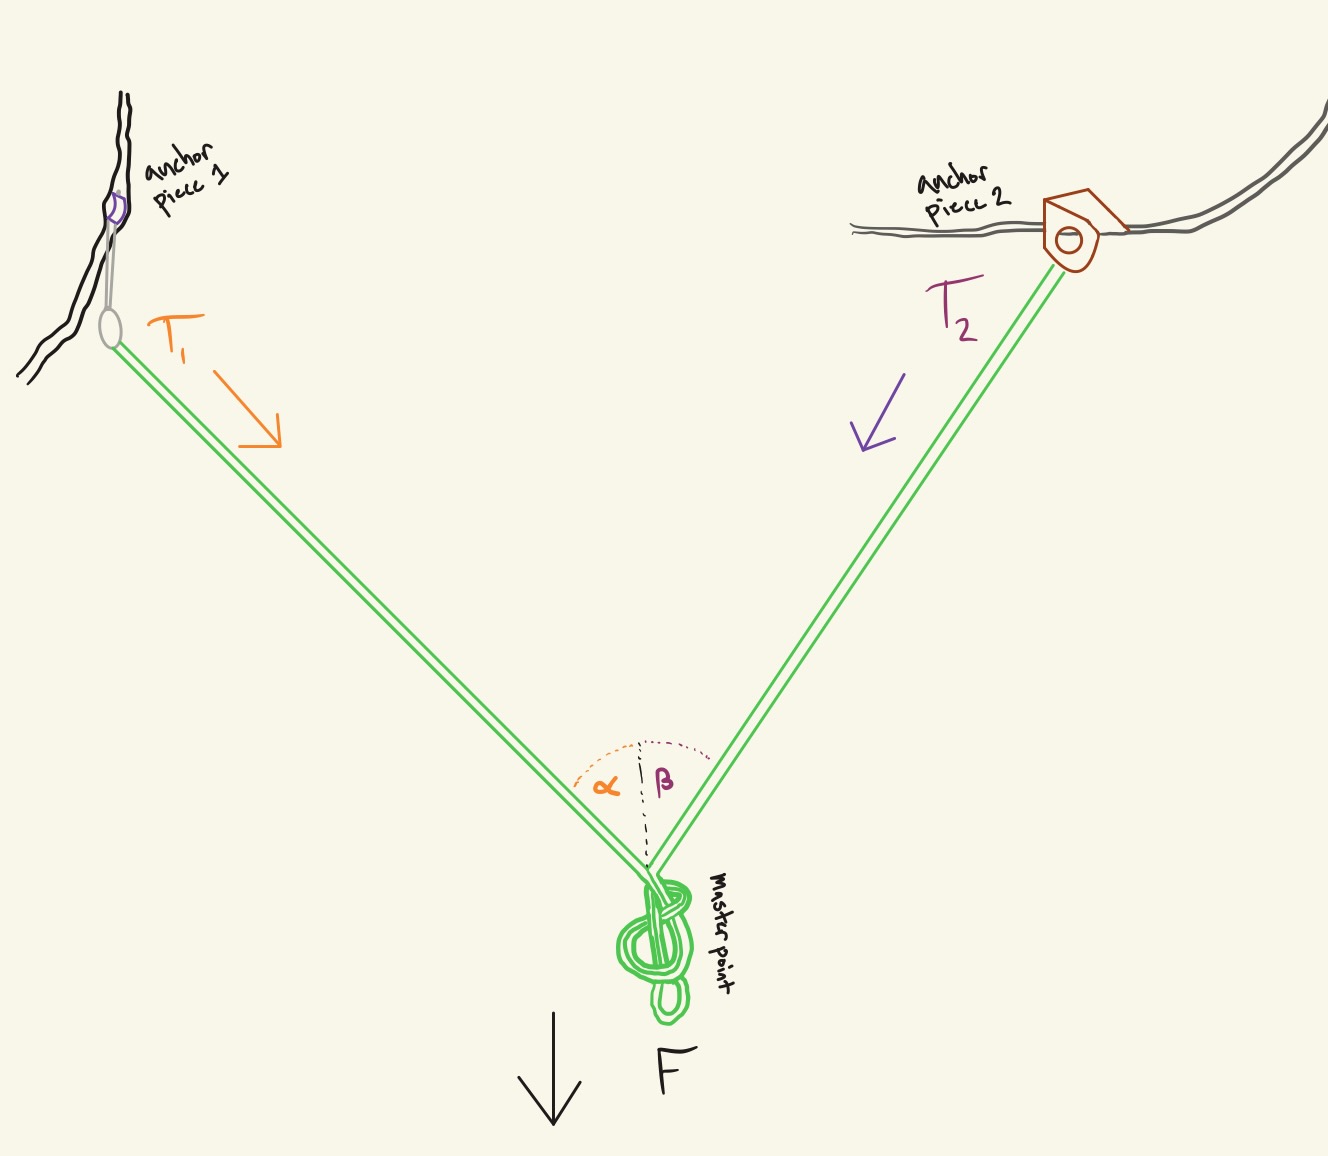 anchor
piece 1
anchor
piece 2
T1
T2
α
β
Master point
F